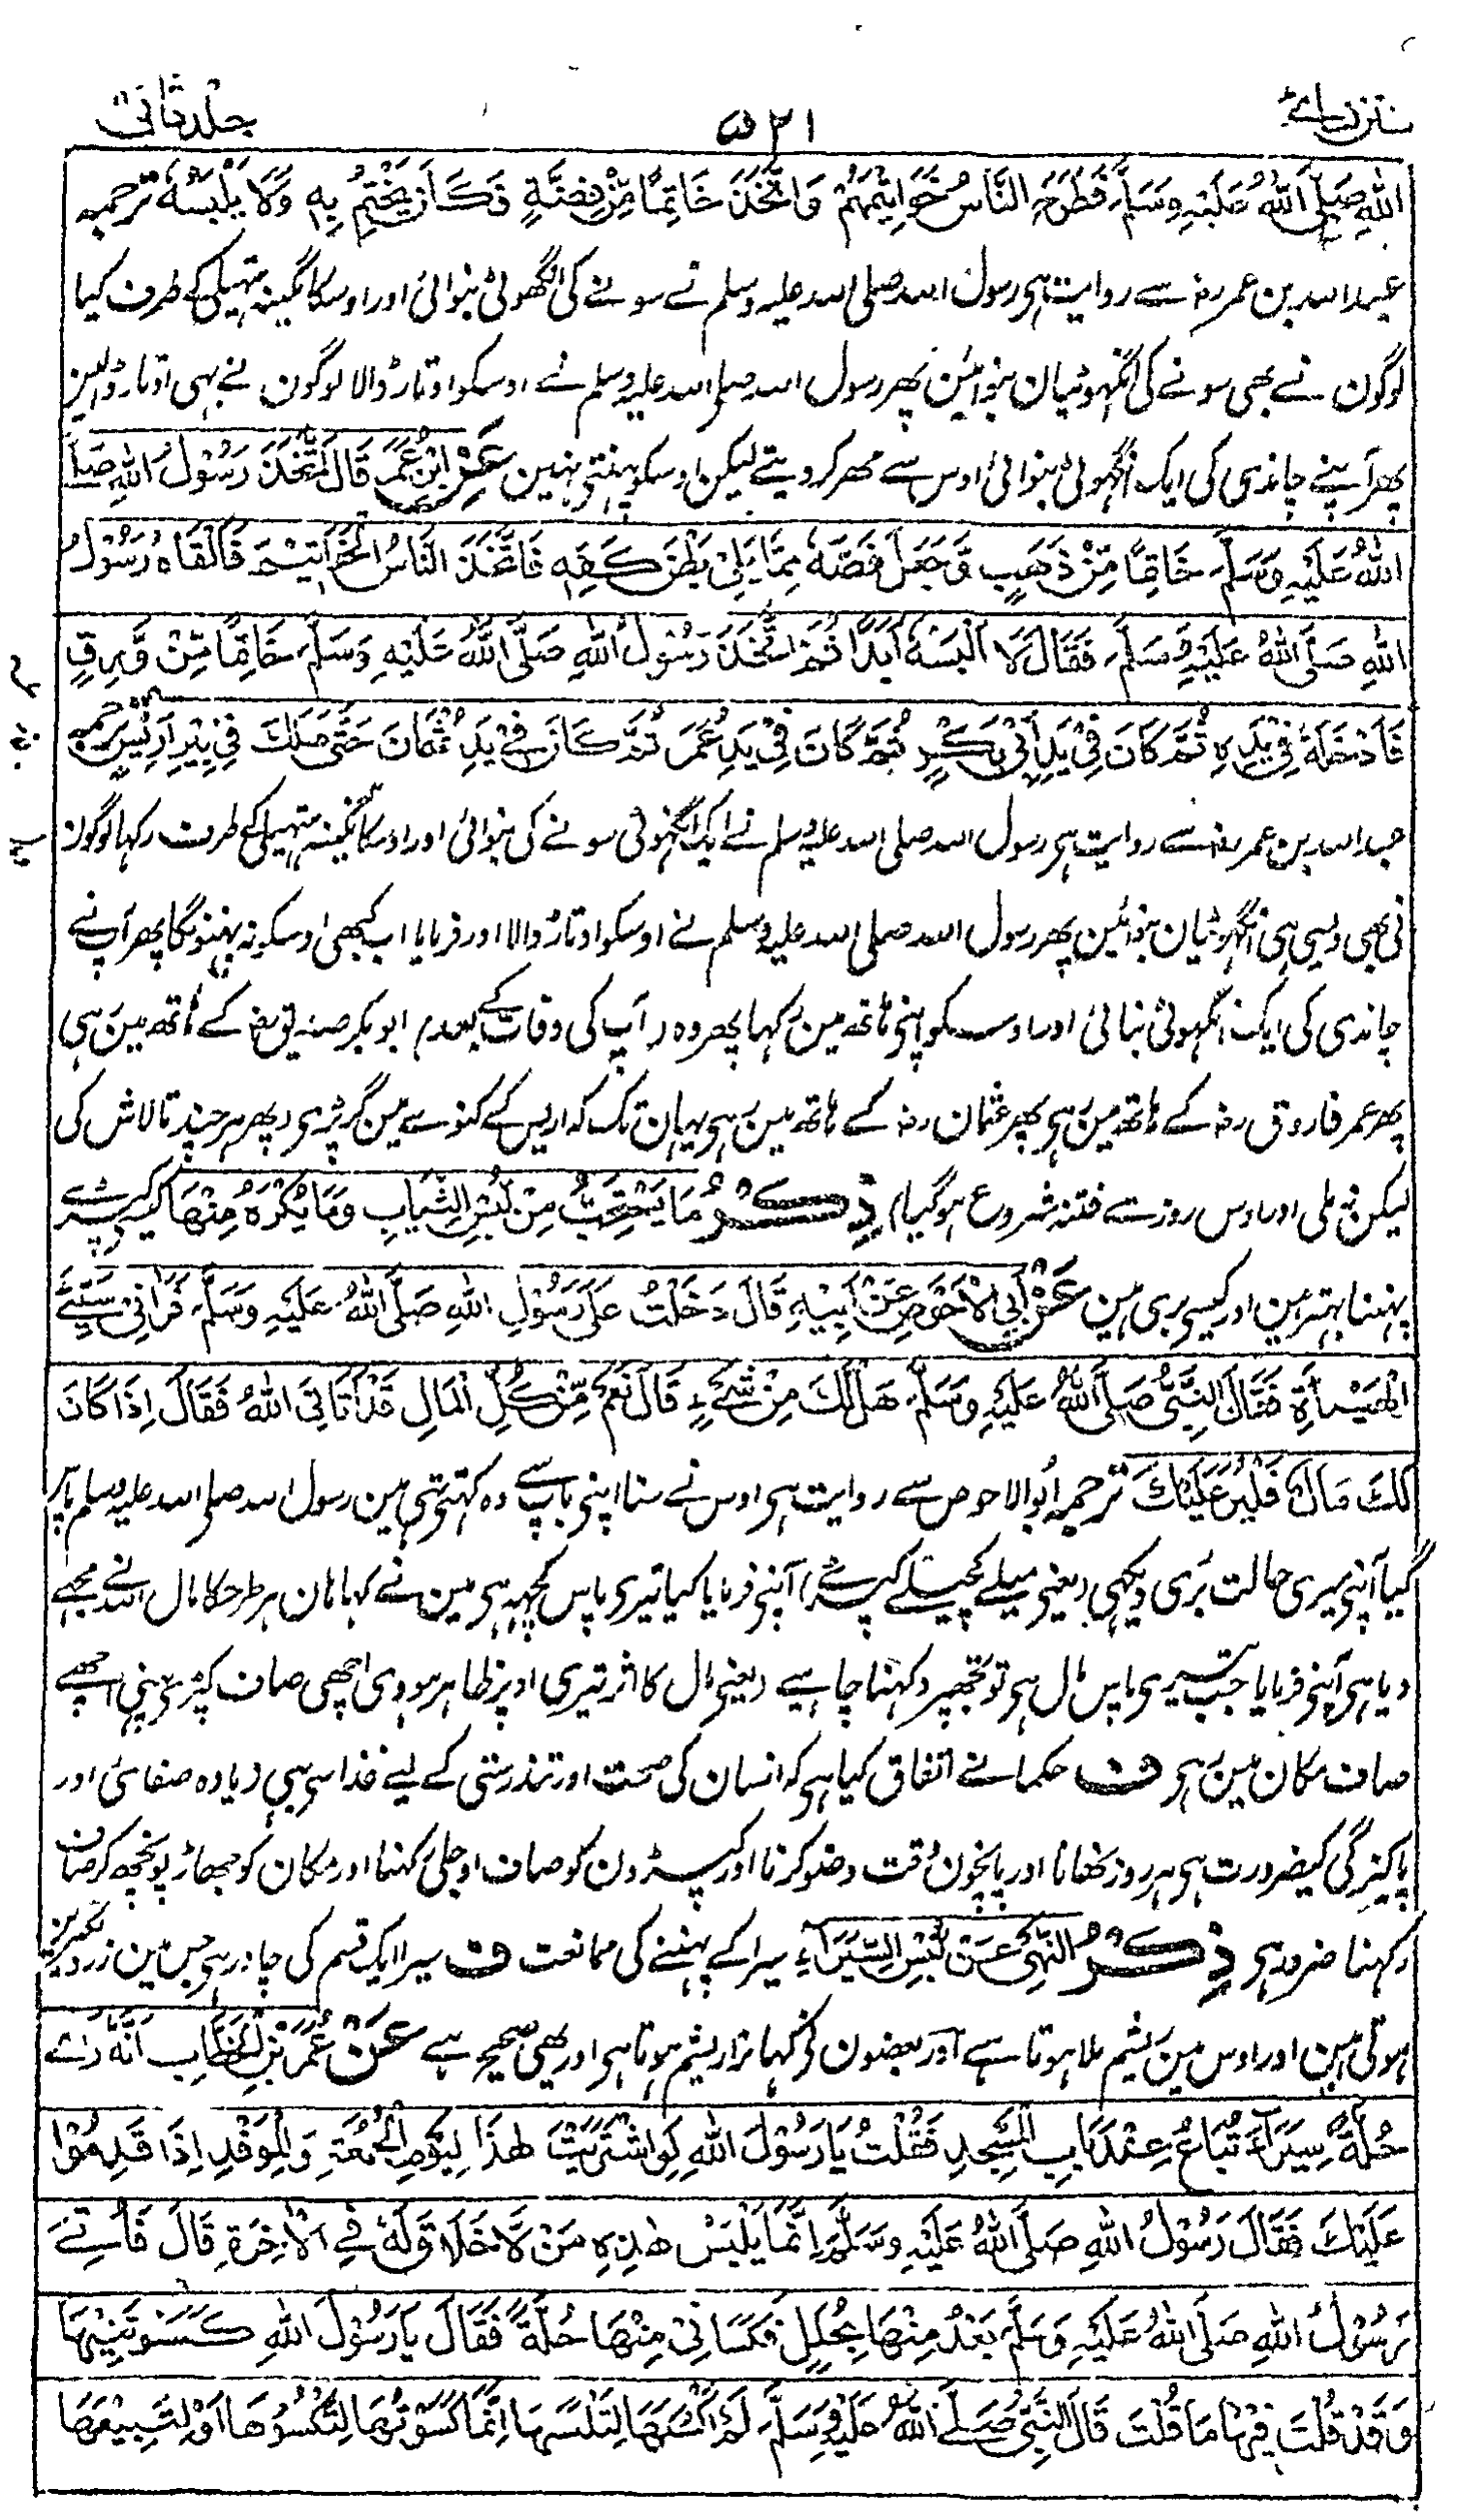 سنن نسائی ۵۲۱ جلد ثانی
اللهِ صَلَّى اللهُ عَلَيْهِ وَسَلَّمَ فَطَرَحَ النَّاسُ خَوَاتِيْمَهُمْ وَاتَّخَذَ خَاتِمًا مِّنْ فِضَّةٍ فَكَانَ يَخْتِمُ بِهٖ وَلَا يَلْبَسُهٗ ترجمہ
عبد اللہ بن عمر رضہ سے روایت ہی رسول اللہ صلی اللہ علیہ وسلم نے سونے کی انگھوٹی بنوائی اور اوسکا نگینہ ہتہیلی کے طرف کیا
لوگون نے بھی سونے کی انگہوٹیان بنوائین پھر رسول اللہ صلے اللہ علیہ وسلم نے اوسکو اوتار ڈالا لوگون نے بہی اوتار ڈالین
پھر آپنے چاندی کی ایک انگہوٹی بنوائی اوس سے مھر کر دیتے لیکن اوسکو پہنتے نہین عَنْ ابْنِ عُمَرَ قَالَ اتَّخَذَ رَسُوْلُ اللهِ صَلَّى
اللهُ عَلَيْهِ وَسَلَّمَ خَاتِمًا مِّنْ ذَهَبٍ وَّجَعَلَ فَصَّهٗ مِمَّا يَلِيْ بَطْنَ كَفِّهٖ فَاتَّخَذَ النَّاسُ الْخَوَاتِيْمَ فَالْقَاهُ رَسُوْلُ
اللهِ صَلَّى اللهُ عَلَيْهِ وَسَلَّمَ فَقَالَ لَا اَلْبَسُهٗ اَبَدًا ثُمَّ اتَّخَذَ رَسُوْلُ اللهِ صَلَّى اللهُ عَلَيْهِ وَسَلَّمَ خَاتِمًا مِّنْ وَّرِقٍ
فَاَدْخَلَهٗ فِيْ يَدِهٖ ثُمَّ كَانَ فِيْ يَدِ اَبِيْ بَكْرٍ ثُمَّ كَانَ فِيْ يَدِ عُمَرَ ثُمَّ كَانَ فِيْ يَدِ عُثْمَانَ حَتّٰى هَلَكَ فِيْ بِيْرِ اَرِيْسٍ ترجمہ
عبد اللہ بن عمر رضہ سے روایت ہی رسول اللہ صلی اللہ علیہ وسلم نے ایک انگہوٹی سونے کی بنوائی اور اوسکا نگینہ ہتہیلی کے طرف رکہا لوگون
نی بھی ویسی ہی انگہوٹیان بنوائین پھر رسول اللہ صلی اللہ علیہ وسلم نے اوسکو اوتار ڈالا اور فرمایا اب کبھی اوسکو نہ پہنونگا پھر آپ نے
چاندی کی ایک انگہوٹی بنائی اور اوسکو اپنی ہاتھ مین رکہا پھر وہ (آپ کی وفات کے بعد) ابو بکر صدیق رضہ کے ہاتھ مین رہی
پھر عمر فاروق رضہ کے ہاتھ مین رہی پھر عثمان رضہ کے ہاتھ مین رہی یہان تک کہ اریس کے کنوے مین گر پڑی (پھر ہر چند تالاش کی
لیکن نہ ملی اور اوس روز سے فتنہ شروع ہو گیا) ذِكْرُ مَا يَسْتَحِبُّ مِنْ لُبْسِ الثِّيَابِ وَمَا يُكْرَهُ مِنْهَا کیسے کپڑے
پہننا بہتر ہین اور کیسی بری ہین عَنْ اَبِي الْاَحْوَصِ عَنْ اَبِيْهِ قَالَ دَخَلْتُ عَلٰى رَسُوْلِ اللهِ صَلَّى اللهُ عَلَيْهِ وَسَلَّمَ فَرَاٰنِيْ سَيِّئَ
الْهَيْئَةِ فَقَالَ النَّبِيُّ صَلَّى اللهُ عَلَيْهِ وَسَلَّمَ هَلْ لَكَ مِنْ شَيْءٍ قَالَ نَعَمْ مِّنْ كُلِّ الْمَالِ قَدْ اٰتَانِيَ اللهُ فَقَالَ اِذَا كَانَ
لَكَ مَالٌ فَلْيُرَ عَلَيْكَ ترجمہ ابو الاحوص سے روایت ہی اوس نے سنا اپنی باپ سے وہ کہتے تہی مین رسول اللہ صلے اللہ علیہ وسلم پاس
گیا آپنی میری حالت بری دیکہی (یعنی میلے کچیلے کپڑے) آپنی فرمایا کیا تیری پاس کچہہ ہی مین نے کہا ہان ہر طرحکا مال اللہ نے مجہے
دیا ہی آپنی فرمایا جب تیری پاس مال ہی تو تجھپر دکہنا چاہیے (یعنی مال کا اثر تیری اوپر ظاہر ہووی اچھی صاف کپڑی پہنی اچھے
صاف مکان مین رہی ف حکمانے اتفاق کیا ہی کہ انسان کی صحت اور تندرستی کے لیے غذا سی بہی زیادہ صفائی اور
پاکیزگی کیضرورت ہی ہر روز نہانا اور پانچون وقت وضو کرنا اور کپڑون کو صاف اوجلی رکہنا اور مکان کو جھاڑ پونچھ کر صاف
رکہنا ضرور ہی ذِكْرُ النَّهْيِ عَنْ لُبْسِ السِّيَرَآءِ سیرا کے پہننے کی ممانعت ف سیرا ایک قسم کی چادر ہی جس مین زرد لکیرین
ہوتی ہین اور اوس مین ریشم ملا ہوتا ہے اور بعضون نے کہا نرا ریشم ہوتا ہی اور یہی صحیح ہے عَنْ عُمَرَ بْنِ الْخَطَّابِ اَنَّهٗ رَاٰى
حُلَّةً سِيَرَآءَ تُبَاعُ عِنْدَ بَابِ الْمَسْجِدِ فَقُلْتُ يَا رَسُوْلَ اللهِ لَوِ اشْتَرَيْتَ هٰذَا لِيَوْمِ الْجُمُعَةِ وَلِلْوَفْدِ اِذَا قَدِمُوْا
عَلَيْكَ فَقَالَ رَسُوْلُ اللهِ صَلَّى اللهُ عَلَيْهِ وَسَلَّمَ اِنَّمَا يَلْبَسُ هٰذِهٖ مَنْ لَّا خَلَاقَ لَهٗ فِي الْاٰخِرَةِ قَالَ فَاُتِيَ
رَسُوْلُ اللهِ صَلَّى اللهُ عَلَيْهِ وَسَلَّمَ بَعْدُ مِنْهَا بِحُلَلٍ فَكَسَانِيْ مِنْهَا حُلَّةً فَقَالَ يَا رَسُوْلَ اللهِ كَسَوْتَنِيْهَا
وَقَدْ قُلْتَ فِيْهَا مَا قُلْتَ قَالَ النَّبِيُّ صَلَّى اللهُ عَلَيْهِ وَسَلَّمَ لَمْ اَكْسُكَهَا لِتَلْبَسَهَا اِنَّمَا كَسَوْتُكَهَا لِتَكْسُوَهَا اَوْ لِتَبِيْعَهَا